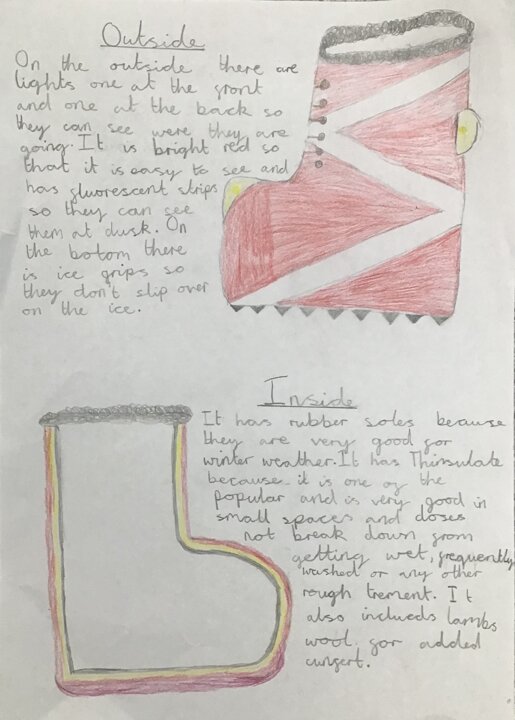 Outside
On the outside there are
lights one at the front
and one at the back so
they can see were they are
going. It is bright red so
that it is easy to see and
has fluorescent strips
so they can see
them at dusk. On
the botom there
is ice grips so
they don't slip over
on the ice.
Inside
It has rubber soles because
they are very good for
winter weather. It has Thinsulate
because it is one of the
popular and is very good in
small spaces and doses
not break down from
getting wet, frequently
washed or any other
rough trement. It
also includeds lambs
wool for added
cumfert.